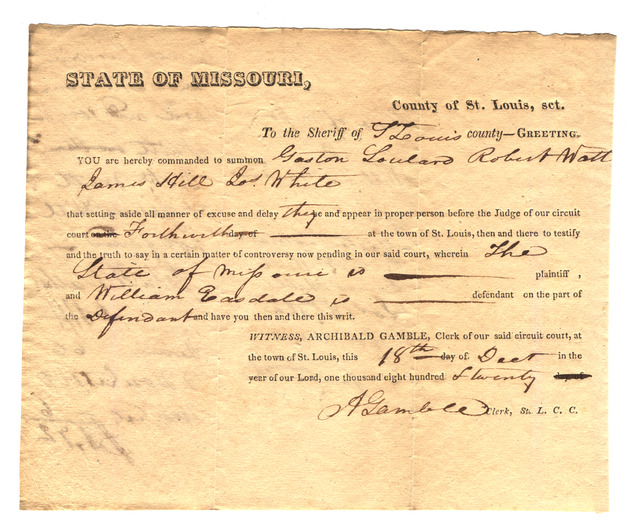 STATE OF MISSOURI,
County of St. Louis, sct.
To the Sheriff of St Louis county—GREETING.
YOU are hereby commanded to summon Gaston Soulard Robert Watt
James Hill Jos. White
that setting aside all manner of excuse and delay they and appear in proper person before the Judge of our circuit
court on the Forthwith day of at the town of St. Louis, then and there to testify
and the truth to say in a certain matter of controversy now pending in our said court, wherein The
State of Missouri is plaintiff ,
and William Easdale is defendant on the part of
the Defendant and have you then and there this writ.
WITNESS, ARCHIBALD GAMBLE, Clerk of our said circuit court, at
the town of St. Louis, this 18th day of Dect in the
year of our Lord, one thousand eight hundred & twenty day of
A Gamble Clerk, St. L. C. C.